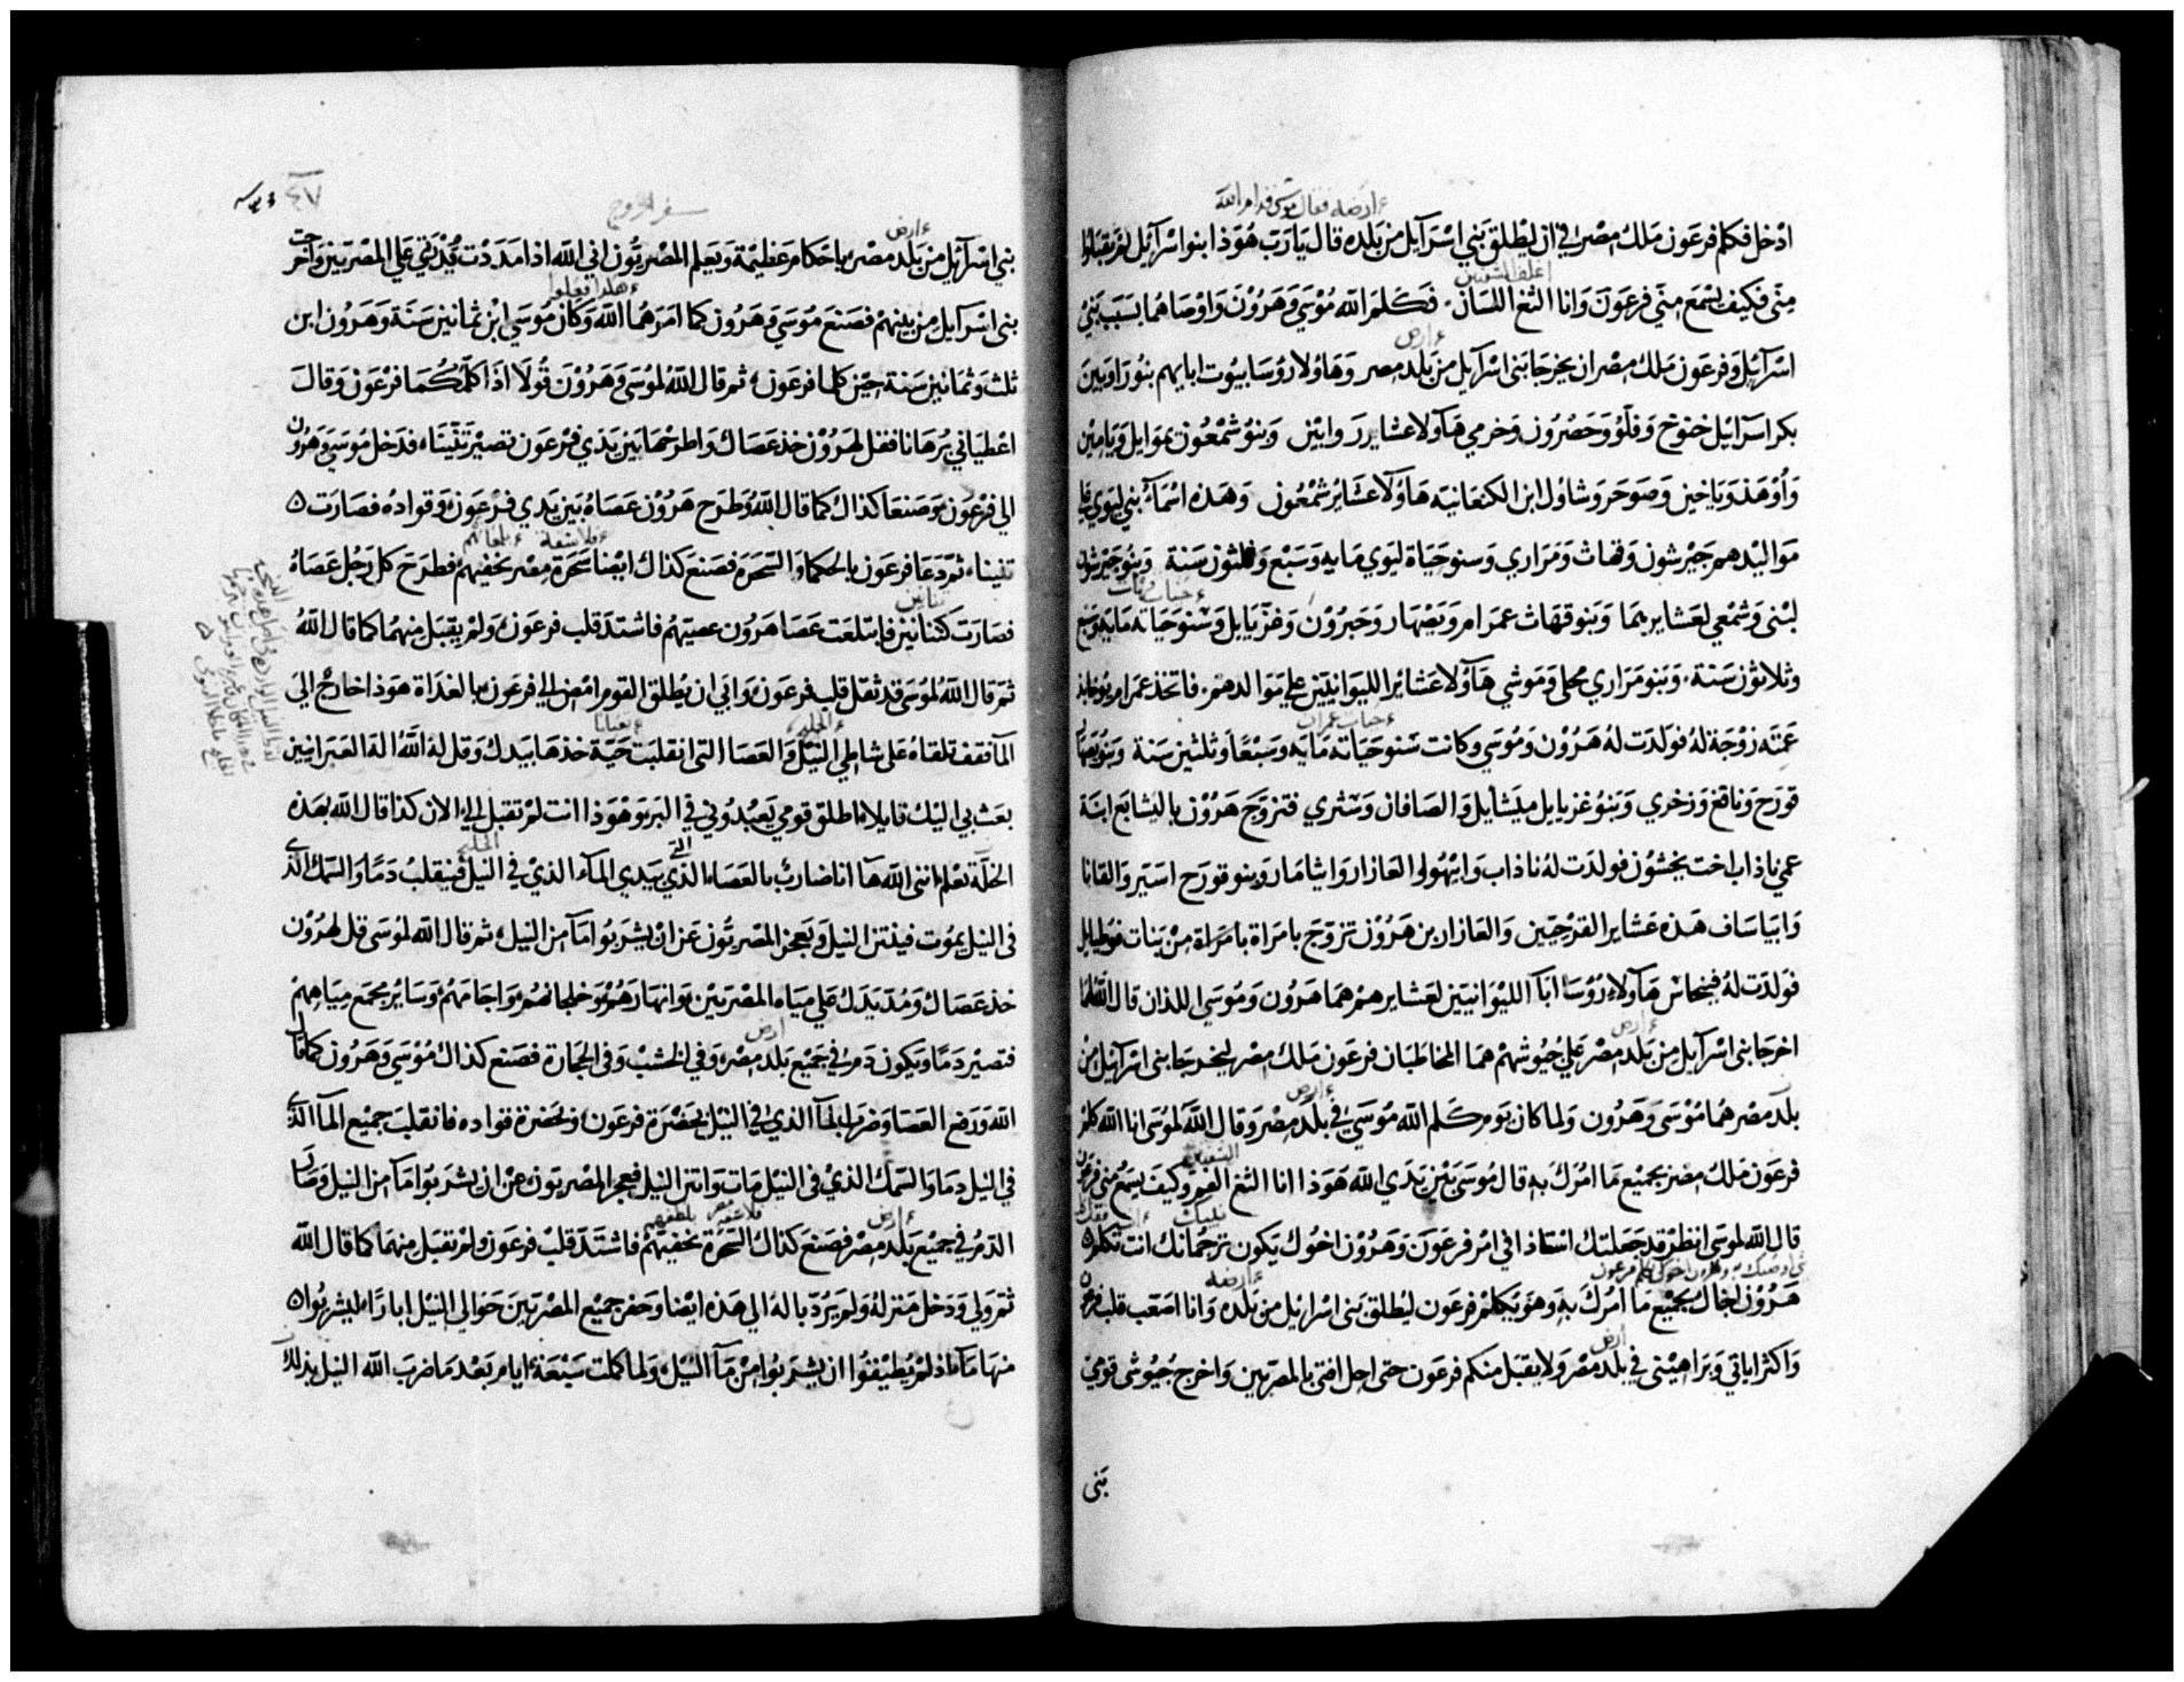 ءارضه فقال موسى قدام الله
ادخل فكلم فرعون ملك مصر في ان يطلق بني اسرآيل من بلده قال يا رب هوذا بنو اسرآئيل لم يقبلوا
اغلف الشفتين
مني فكيف يسمع مني فرعون وانا الثغ اللسان فكلم الله موسي وهرون واوصاهما بسبب بني
ءارض
اسرآئيل وفرعون ملك مصر ان يخرجا بني اسرآيل من بلد مصر وهاولا روسا بيوت ابايهم بنو راوبين
بكر اسرآئيل خنوخ وفلو وحصرون وخرمي هآولا عشاير روابين وبنو شمعون يموايل ويامين
واوهد وياخين وصوحر وشاول ابن الكنعانية هاولا عشاير شمعون وهذه اسمآ بني ليوي علي
مواليدهم جيرشون وقهاث ومراري وسنو حياة ليوي مايه وسبع وثلثون سنة وبنو جيرشون
لبني وشمعي لعشايرهما وبنو قهاث عمرام ويصهار وحبرون وعزيايل وسنو حياة قهات مايه وسبع
وثلاثون سنة وبنو مراري محلي وموشي هآولا عشائر الليوانيين علي موالدهم فاتخذ عمرام يوخابذ
ءحياة عمران
عمته زوجة له فولدت له هرون وموسي وكانت سنو حياته مايه وسبعا وثلثين سنة وبنو يصهار
قورح ونافغ وزخري وبنو عزيايل ميشايل والصافان وستري فتزوج هرون باليشابع ابنة
عميناذاب اخت يخشون فولدت له ناذاب وابيهو والعازار وايثامار وبنو قورح اسير والقانا
وابياساف هذه عشاير القرحيين والعازار بن هرون تزوج بامراة بامراة من بنات فوطيايل
فولدت له فينحاس هآولا روسا ابآ الليوانيين لعشايرهم هما هرون وموسي اللذان قال الله لهما
ءارض
اخرجا بني اسرآيل من بلد مصر علي جيوشهم هما المخاطبان فرعون ملك مصر ليخرجا بني اسرآئيل من
ءارض
بلد مصر هما موسي وهرون ولما كان يوم كلم الله موسي في بلد مصر وقال الله لموسي انا الله كلم
الشفتين
فرعون ملك مصر بجميع ما امرك به قال موسي بين يدي الله هوذا انا الثغ الفم وكيف يسمع مني فرعون
قال الله لموسى انظر قد جعلتك استاذا في امر فرعون وهرون اخوك يكون ترجمانك انت تكلم
ءارضه
هرون اخاك بجميع ما امرك به وهو يكلم فرعون ليطلق بني اسرائيل من بلده وانا اصعب قلب فرعون
ارض
واكثر اياتي وبراهيني في بلد مصر ولا يقبل منكم فرعون حتى احل افتي بالمصريين واخرج جيوشي قومي
بني
٤٧
سفر الخروج
ءارض
بني اسرآئيل من بلد مصر باحكام عظيمة ويعلم المصريون اني الله اذا مددت يدي علي المصريين واخرجت
ءهكذا فعلوا
بني اسرآيل من بينهم فصنع موسي وهرون كما امرهما الله وكان موسي ابن ثمانين سنة وهرون ابن
ثلث وثمانين سنة حين كلما فرعون ثم قال الله لموسي وهرون قولا اذا كلمكما فرعون وقال
اعطياني برهانا فقل لهرون خذ عصاك واطرحها بين يدي فرعون تصير تنينا فدخل موسي وهرون
الي فرعون وصنعا كذاك كما قال الله وطرح هرون عصاه بين يدي فرعون وقواده فصارت
ءفلاسفة
تنينا ثم دعا فرعون بالحكما والسحرة فصنع كذاك ايضا سحرة مصر بخفيهم فطرح كل رجل عصاه
تنانين
فصارت كتنانين فابتلعت عصا هرون عصيهم فاشتد قلب فرعون ولم يقبل منهما كما قال الله
ثم قال الله لموسي قد ثقل قلب فرعون وابي ان يطلق القوم امض الي فرعون بالغداة هوذا خارج الي
ءالخليج ءثعبانا
المآ فقف تلقاه علي شاطي النيل والعصا التي انقلبت حية خذها بيدك وقل له الله اله العبرانيين
بعث بي اليك قايلا اطلق قومي يعبدوني في البر وهوذا انت لم تقبل الي الان كذا قال الله بهذه
التي الخليج
الخلة تعلم انني الله ها انا ضارب بالعصا الذي بيدي المآء الذي في النيل فينقلب دما والسمك الذي
في النيل يموت فينتن النيل ويعجز المصريون عن ان يشربوا مآ من النيل ثم قال الله لموسي قل لهرون
خذ عصاك ومد يدك علي مياه المصريين وانهارهم وخلجانهم واجامهم وساير مجمع مياههم
ارض
فتصير دما ويكون دم في جميع بلد مصر وفي الخشب وفي الحجارة فصنع كذاك موسي وهرون كما قال
الله ورفع العصا وضرب المآ الذي في النيل بحضرة فرعون وبحضرة قواده فانقلب جميع المآ الذي
في النيل دما والسمك الذي في النيل مات وانتن النيل فعجز المصريون عن ان يشربوا مآ من النيل وصار
ءارض
الدم في جميع بلد مصر فصنع كذاك السحرة بخفيهم فاشتد قلب فرعون ولم يقبل منهما كما قال الله
ثم ولي ودخل منزله ولم يرد باله الي هذه ايضا وحفر جميع المصريين حوالي النيل ابارا ليشربوا
منها مآ اذ لم يطيقوا ان يشربوا من مآ النيل ولما كملت سبعة ايام بعد ما ضرب الله النيل بذلك